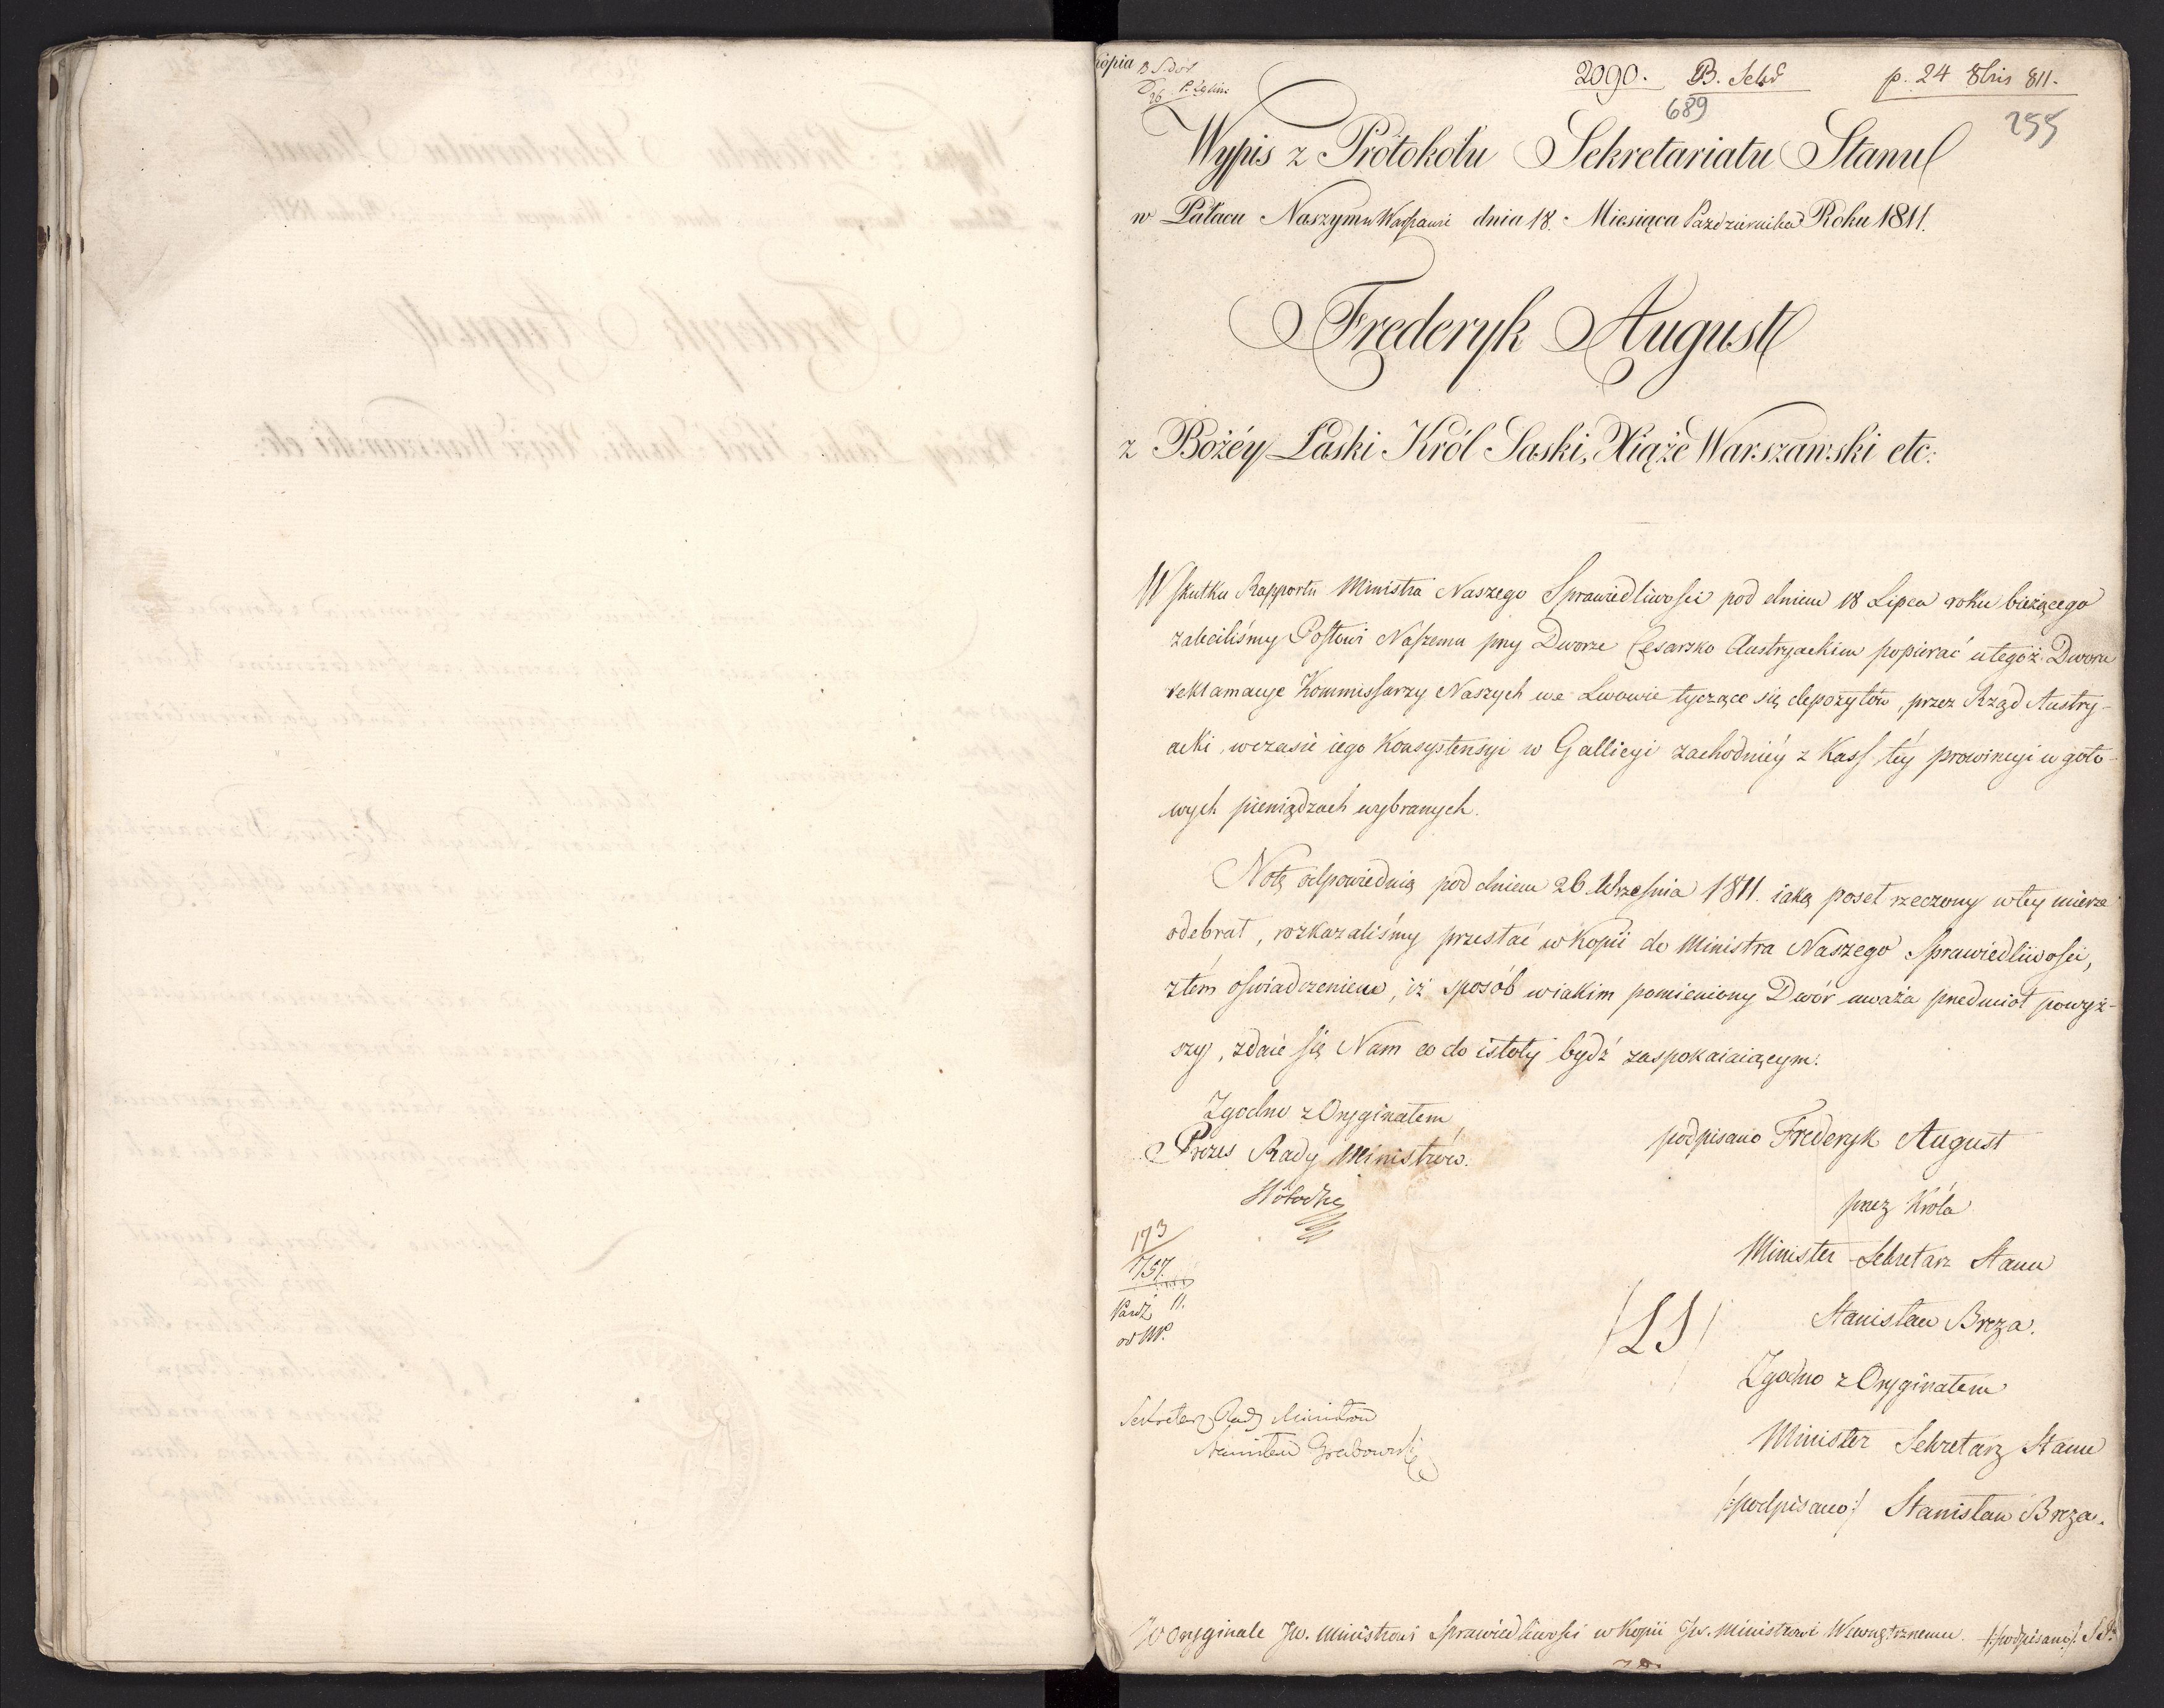 Kopia
2090. B. Sekr p. 24 8bris 811.
689
255
Wypis z Protokołu Sekretariatu Stanu
w Pałacu Naszym w Warszawie dnia 18. Miesiąca Października Roku 1811.
Frederyk August
z Bożéy Łaski Król Saski, Xiąże Warszawski etc:
W skutku Rapportu Ministra Naszego Sprawiedliwości pod dniem 18 Lipca roku bieżącego
zaleciliśmy Posłowi Naszemu przy Dworze Cesarsko Austryackim popierać u tegoż Dworu
reklamacye Kommissarzy Naszych we Lwowie tyczące się depozytów, przez Rząd Austry-
acki, w czasie iego Konsystensyi w Gallicyi zachodniéy z Kass téy prowincyi w goto-
wych pieniądzach wybranych.
Notę odpowiednią pod dniem 26 Września 1811. iaką poseł rzeczony w tey mierze
odebrał, rozkazaliśmy przesłać w Kopii do Ministra Naszego Sprawiedliwości,
z tém oświadczeniem, iż sposób w iakim pomieniony Dwór uważa przedmiot powyż-
szy, zdaie się Nam co do istoty bydź zaspokaiaiącym.
Zgodno z Oryginałem
Prezes Rady Ministrów.
podpisano Frederyk August
przez Króla
Minister Sekretarz Stanu
Stanisław Breza.
/LS/
173
1757.
Paźdź 11.
od M.
Zgodno z Oryginałem
Minister Sekretarz Stanu
/:podpisano:/ Stanisław Breza.
Sekretarz Rady Ministrów
Stanisław Grabowski
W Oryginale Jw. Ministrowi Sprawiedliwości w Kopii Jw. Ministrowi Wewnętrznemu. /:podpisano:/ S B.